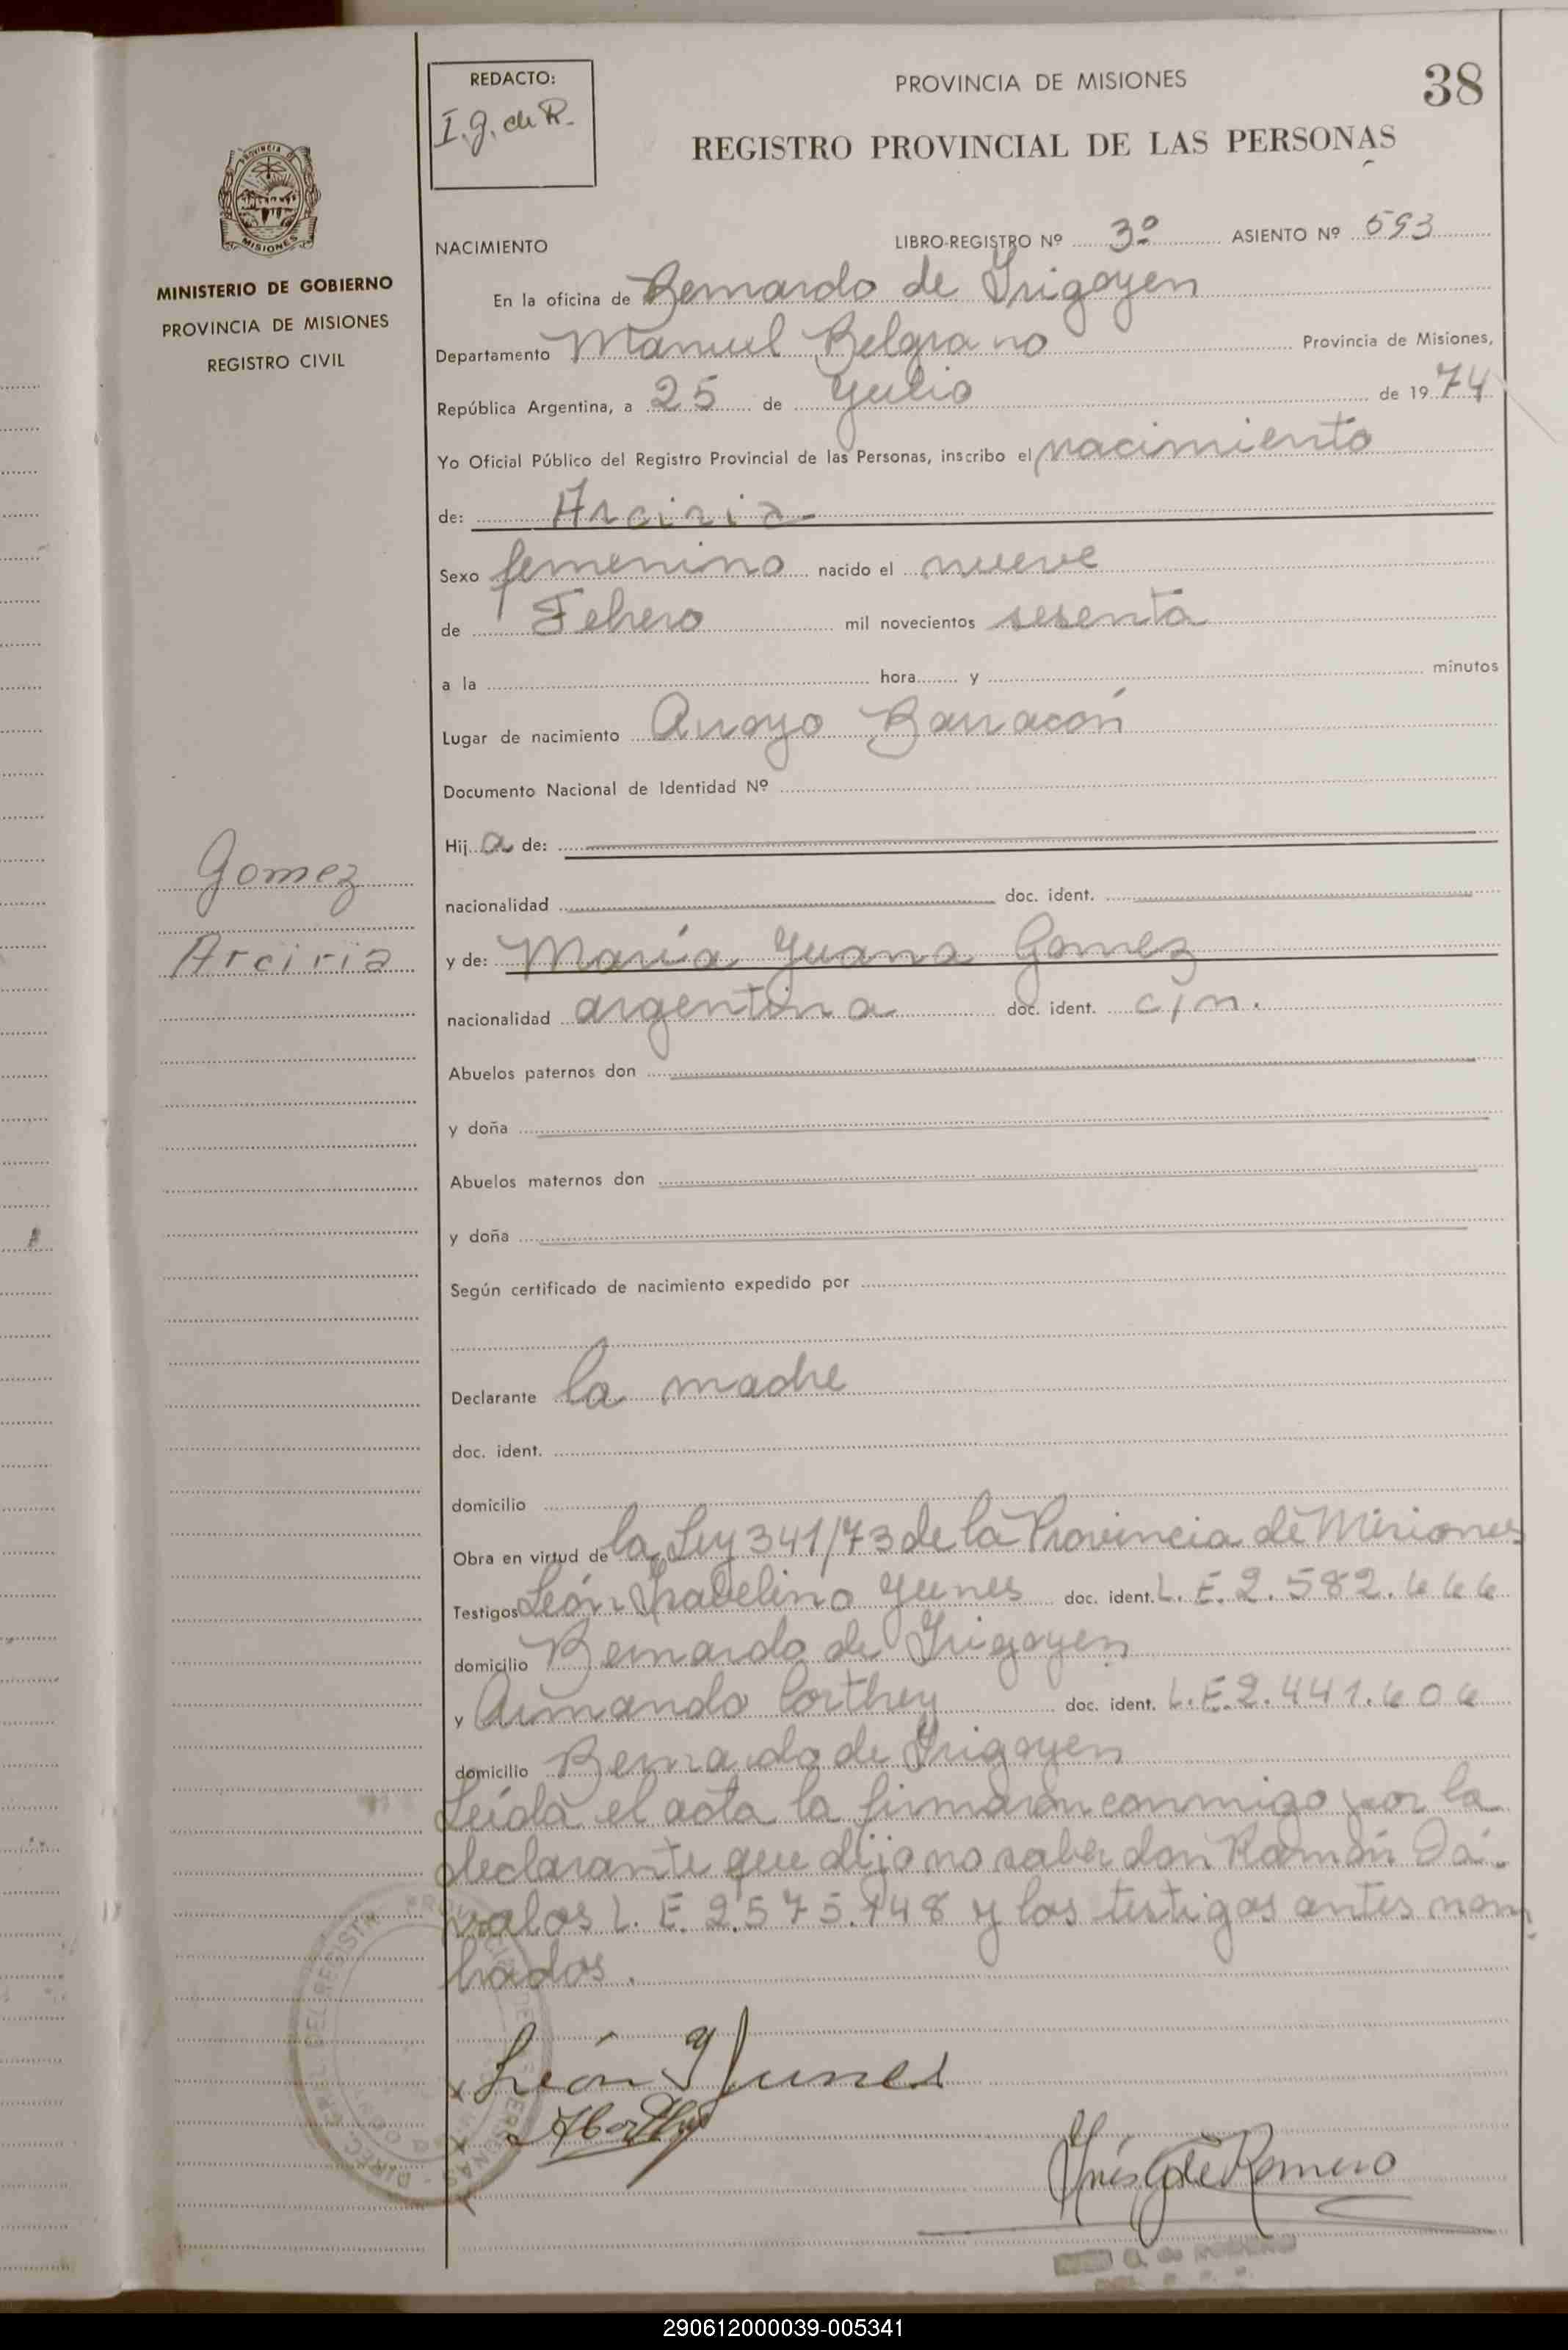 REDACTO:
I. g. de R.
PROVINCIA DE MISIONES
38
REGISTRO PROVINCIAL DE LAS PERSONAS
PROVINCIA DE
MISIONES
MINISTERIO DE GOBIERNO
PROVINCIA DE MISIONES
REGISTRO CIVIL
NACIMIENTO LIBRO-REGISTRO Nº 3º ASIENTO Nº 593
En la oficina de Bernardo de Irigoyen
Departamento Manuel Belgrano Provincia de Misiones,
República Argentina, a 25 de Julio de 1974
Yo Oficial Público del Registro Provincial de las Personas, inscribo el nacimiento
de: Arciria
Sexo femenino nacido el nueve
de Febrero mil novecientos sesenta
a la hora y minutos
Lugar de nacimiento Arroyo Barracón
Documento Nacional de Identidad Nº
Hija de:
Gomez
nacionalidad doc. ident.
Arciria
y de: María Juana Gomez
nacionalidad argentina doc. ident. c/n.
Abuelos paternos don
y doña
Abuelos maternos don
y doña
Según certificado de nacimiento expedido por
Declarante la madre
doc. ident.
domicilio
Obra en virtud de la Ley 341/73 de la Provincia de Misiones
Testigos León Yunes doc. ident. L. E. 2.582.666
domicilio Bernardo de Irigoyen
y Armando Corthey doc. ident. L.E.2.441.606
domicilio Bernardo de Irigoyen
Leída el acta la firmaron conmigo por la
declarante que dijo no saber don Ramón Dá-
valos L. E. 2.575.748 y los testigos antes nom-
brados.
León Yunes
Inés G de Romero
290612000039-005341